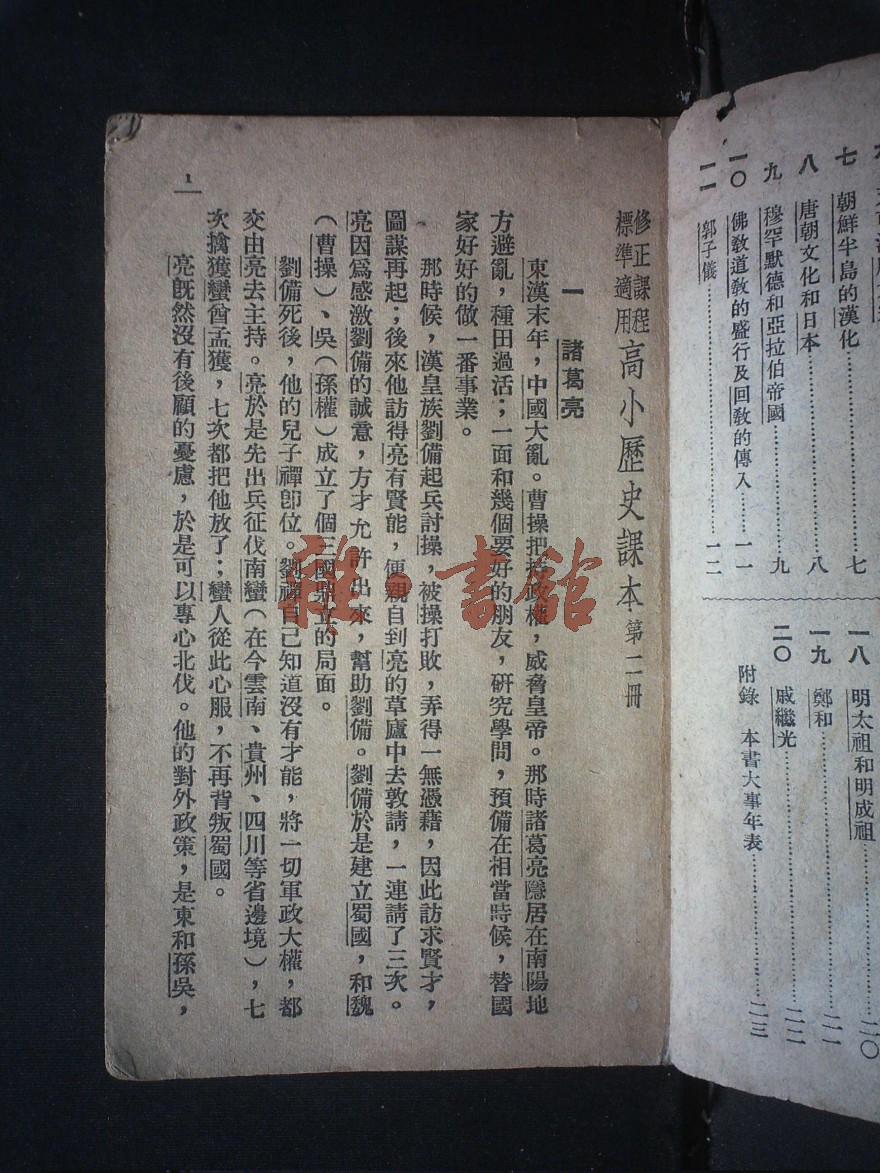 七 朝鮮半島的漢化⋯⋯七
八 唐朝文化和日本⋯⋯八
九 穆罕默德和亞拉伯帝國⋯⋯九
一〇 佛敎道敎的盛行及回敎的傳入⋯⋯一一
一一 郭子儀⋯⋯一二
一八 明太祖和明成祖⋯⋯二〇
一九 鄭和⋯⋯二一
二〇 戚繼光⋯⋯二二
附錄 本書大事年表⋯⋯二三
修正課程
標準適用
高小歷史課本 第二冊
一 諸葛亮
東漢末年，中國大亂。曹操把持政權，威脅皇帝。那時諸葛亮隱居在南陽地
方避亂，種田過活；一面和幾個要好的朋友，研究學問，預備在相當時候，替國
家好好的做一番事業。
那時候，漢皇族劉備起兵討操，被操打敗，弄得一無憑藉，因此訪求賢才，
圖謀再起；後來他訪得亮有賢能，便親自到亮的草廬中去敦請，一連請了三次。
亮因爲感激劉備的誠意，方才允許出來，幫助劉備。劉備於是建立蜀國，和魏
（曹操）、吳（孫權）成立了個三國鼎立的局面。
劉備死後，他的兒子禪卽位。劉禪自己知道沒有才能，將一切軍政大權，都
交由亮去主持。亮於是先出兵征伐南蠻（在今雲南、貴州、四川等省邊境），七
次擒獲蠻酋孟獲，七次都把他放了；蠻人從此心服，不再背叛蜀國。
亮旣然沒有後顧的憂慮，於是可以專心北伐。他的對外政策，是東和孫吳，
1
雜·書館